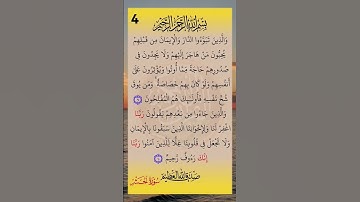 4
بِسْمِ اللَّهِ الرَّحْمَنِ الرَّحِيمِ
وَالَّذِينَ تَبَوَّءُوا الدَّارَ وَالْإِيمَانَ مِن قَبْلِهِمْ
يُحِبُّونَ مَنْ هَاجَرَ إِلَيْهِمْ وَلَا يَجِدُونَ فِي
صُدُورِهِمْ حَاجَةً مِّمَّا أُوتُوا وَيُؤْثِرُونَ عَلَىٰ
أَنفُسِهِمْ وَلَوْ كَانَ بِهِمْ خَصَاصَةٌ وَمَن يُوقَ
شُحَّ نَفْسِهِ فَأُولَٰئِكَ هُمُ الْمُفْلِحُونَ
وَالَّذِينَ جَاءُوا مِن بَعْدِهِمْ يَقُولُونَ رَبَّنَا
اغْفِرْ لَنَا وَلِإِخْوَانِنَا الَّذِينَ سَبَقُونَا بِالْإِيمَانِ
وَلَا تَجْعَلْ فِي قُلُوبِنَا غِلًّا لِّلَّذِينَ آمَنُوا رَبَّنَا
إِنَّكَ رَءُوفٌ رَّحِيمٌ
صدق الله العظيم
سورة الحشر